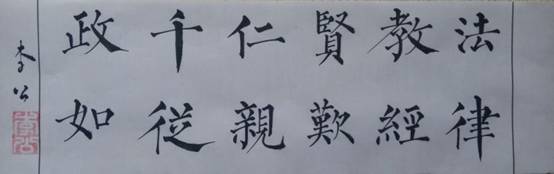 法律
教經
賢歎
仁親
千從
政如
李公